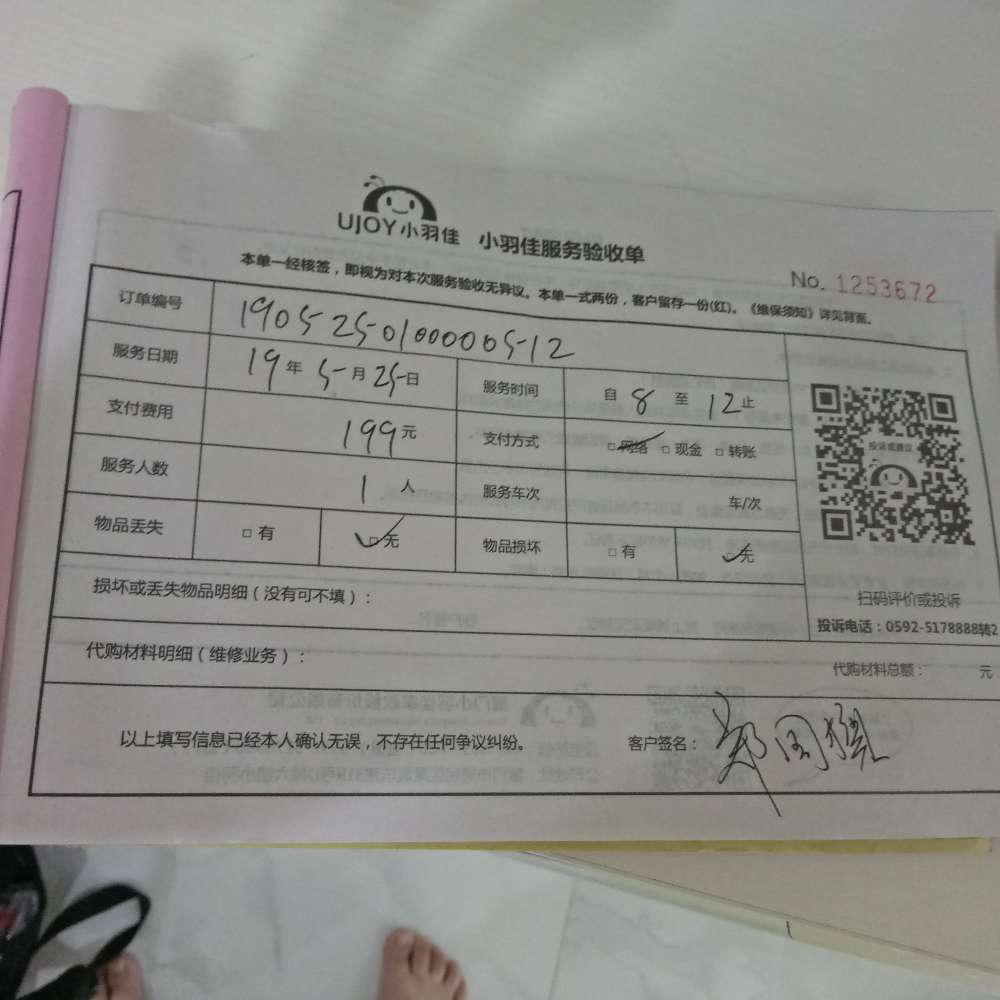 UJOY小羽佳 小羽佳服务验收单
本单一经核签，即视为对本次服务验收无异议。本单一式两份，客户留存一份(红)。《维保须知》详见背面。
No. 1253672
订单编号 19052501000000512
服务日期 19年5月25日 服务时间 自8至12止
支付费用 199元 支付方式 □网络 □现金 □转账
服务人数 1人 服务车次 车/次
物品丢失 □有 □无 物品损坏 □有 □无
投诉或建议
扫码评价或投诉
投诉电话：0592-5178888转2
损坏或丢失物品明细（没有可不填）：
代购材料明细（维修业务）：
代购材料总额： 元
以上填写信息已经本人确认无误，不存在任何争议纠纷。 客户签名：